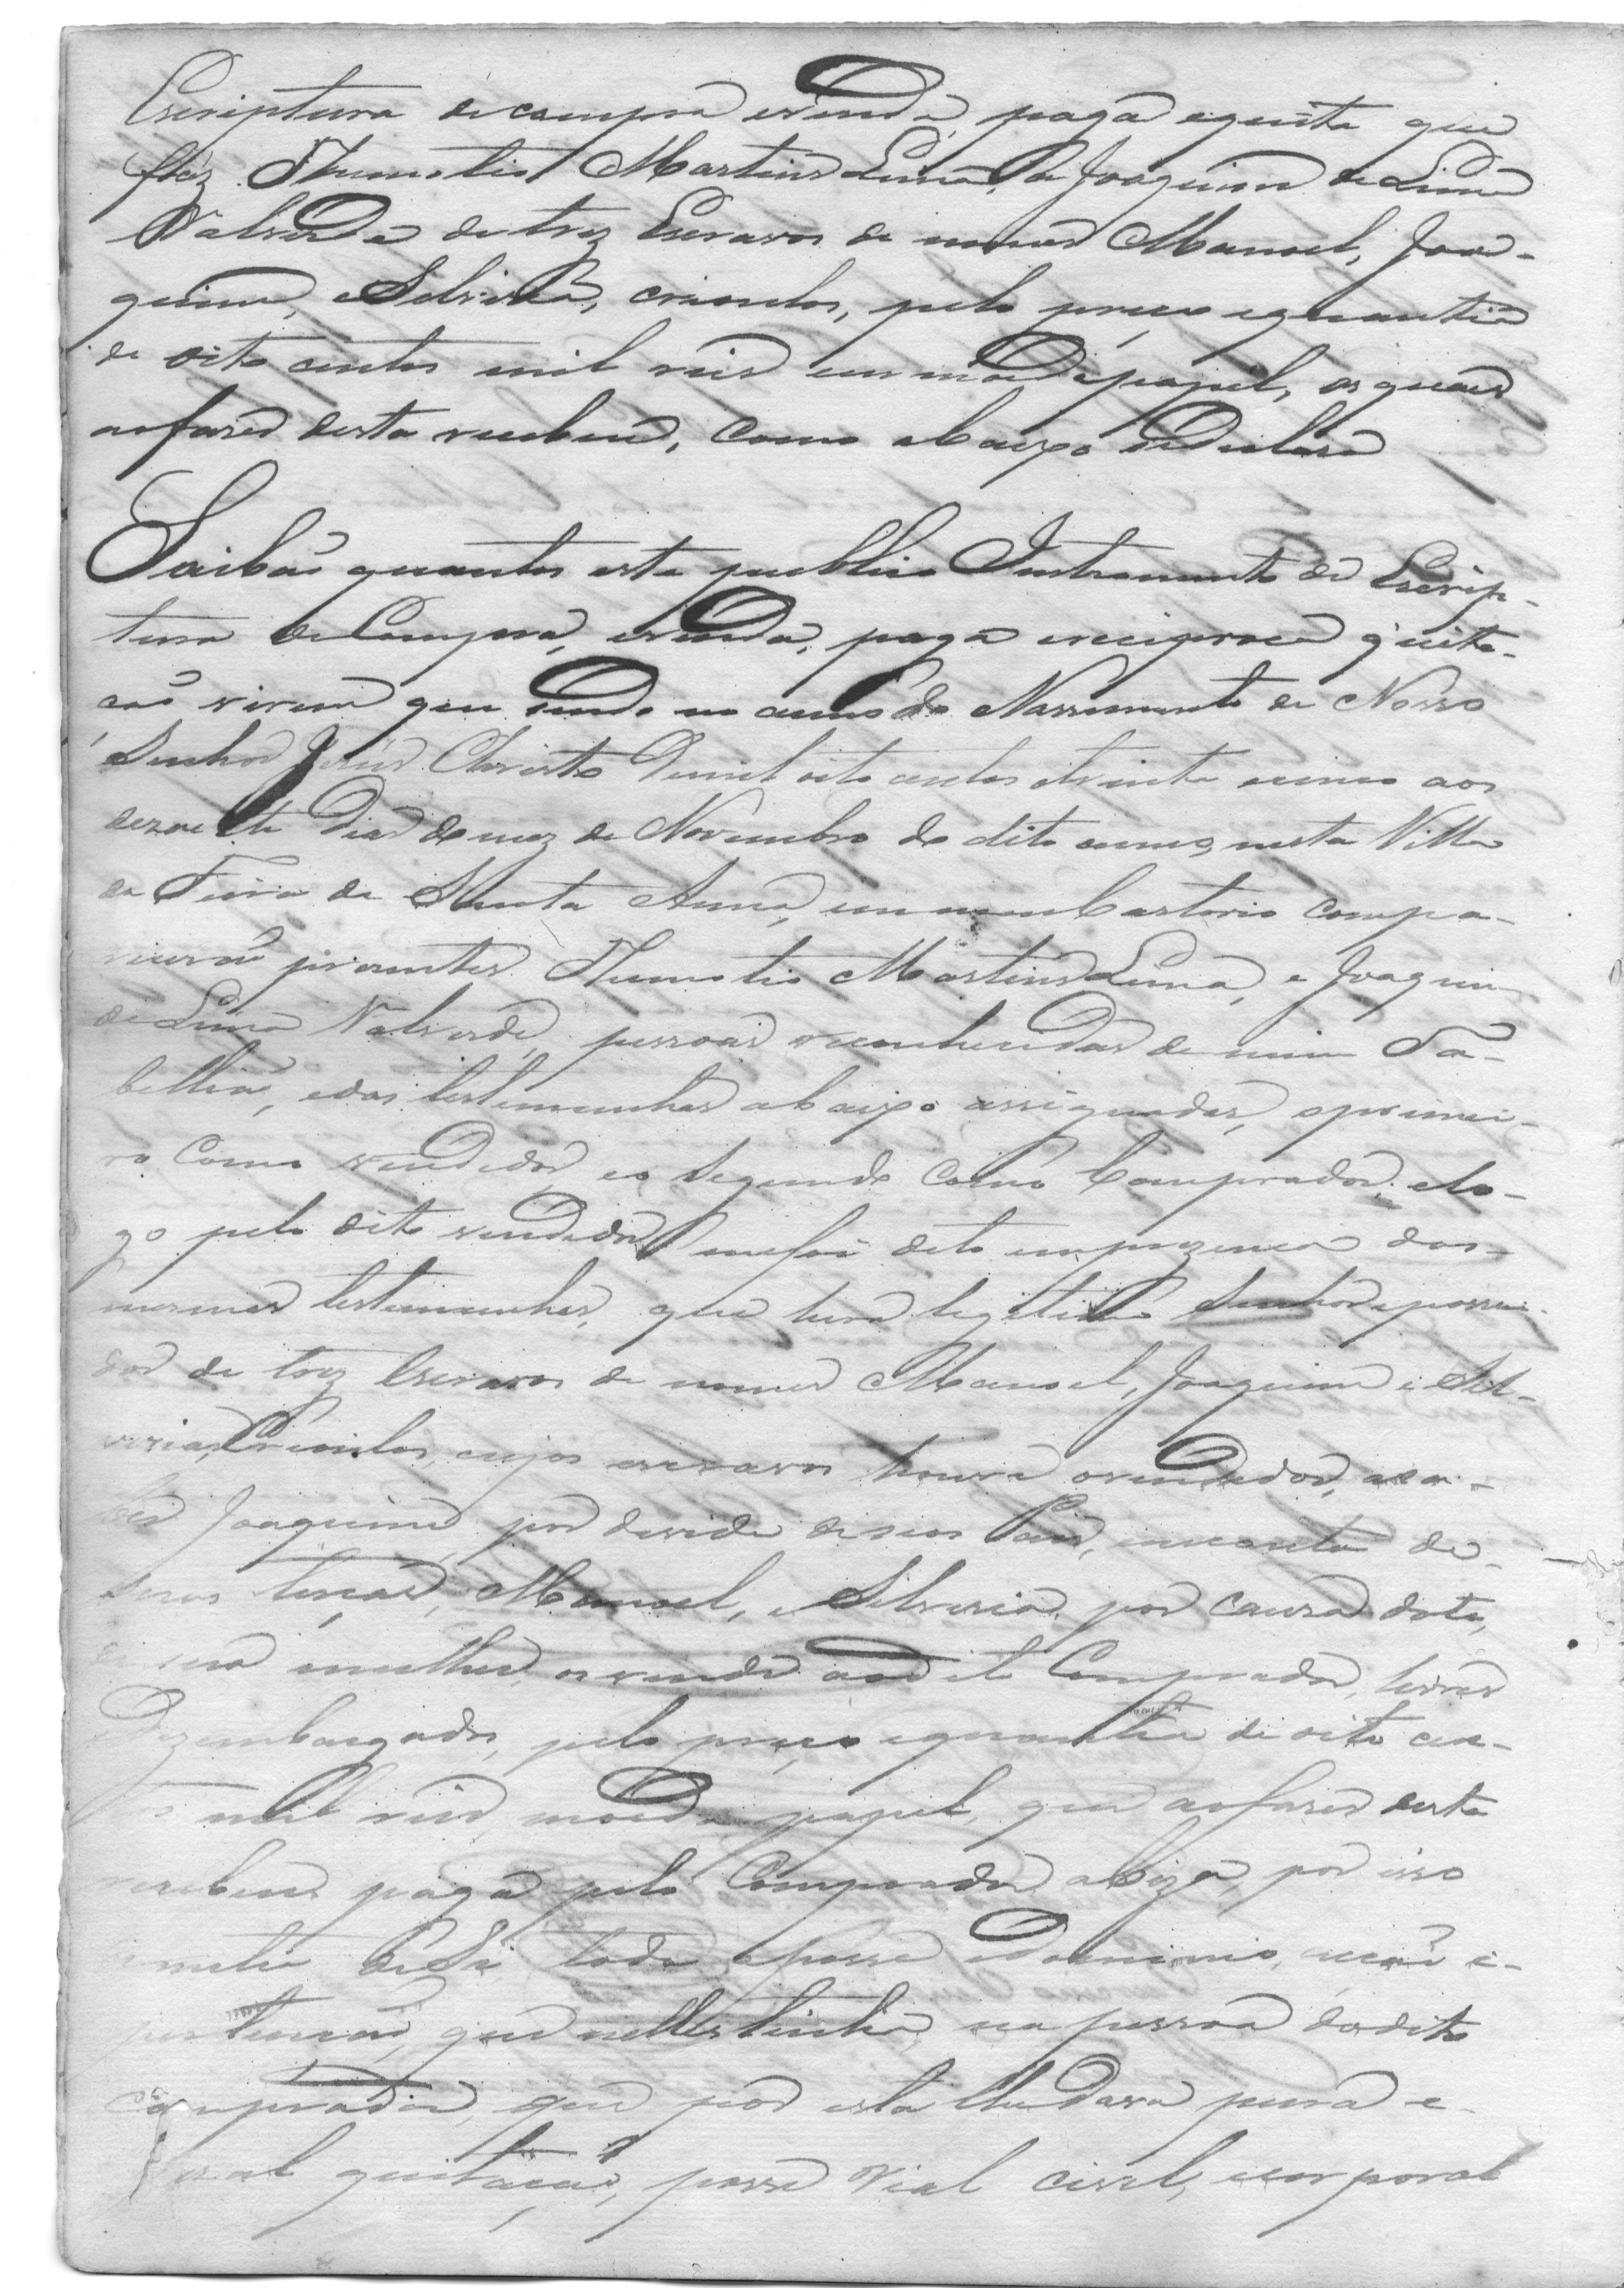 Escriptura de compra evenda, paga equita que
fáz Martins Lima, á Joaquim de Lima
Valverde de trez Escravos de nomes Manoel, Joa-
quim, e Silviria, crioulos, pelo preço equantia
de oito centos mil reis em moéda papel, os quaes
aofazer desta recebeu, como abaixo sedeclara
Saibaõ quantos este publico Instromento de Escrip-
tura de Compra, evenda, paga ereciproca quita-
çaõ virem que sendo no anno do Nassimento de Nosso
Senhor Jesus Christo Demil oito centos etrinta ecinco aos
dezacete dias do mez de Novembro do dito anno, nesta Villa
da Feira de Santa Anna, em meu Cartorio compa-
receraõ prezentes Martins Lima, e Joaquim
de Lima Valverde, pessoas reconhecidas de mim Ta-
belliaõ, edas testemunhas abaixo assignadas, oprimei-
ro como vendedor, eo segundo como Comprador, elo-
go pelo dito vendedor mefoi dito emprezenca das
mesmas testemunhas, que hera legitimo Senhor epossui-
dor de trez Escravos de nomes Manoel, Joaquim e Sil-
viria, Crioulos, cujos escravos houve ovendedor, asa-
ber Joaquim, por devida deseos Pais, emconta de
seras terças, Manoel, e Silveria, por causa dote,
de sua mulher, os vende aodito Comprador, livres
Dezembargados, pelo preço equantia de oito cen-
tos mil reis, moeda papel, que aofazer desta
recebeu paga pelo Comprador aSiza, por isso
demetia deSi toda aposse edominio, acçaõ e
pertençaõ, que nelles tinha, na pessoa dodito
comprador, que por esta lhedava pura e
geral quitaçaõ, posse Rial civel, ecorporal